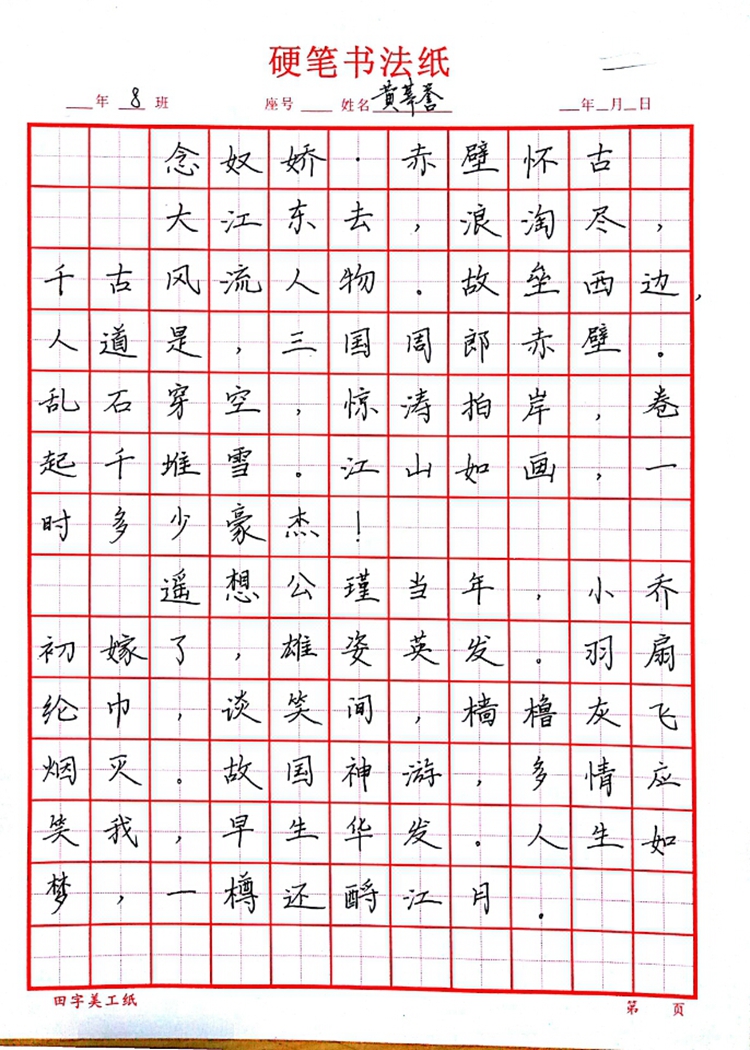 硬笔书法纸
年 8 班 座号 姓名 黄 誉 年 月 日
念奴娇·赤壁怀古
大江东去,浪淘尽,
千古风流人物。故垒西边,
人道是,三国周郎赤壁。
乱石穿空,惊涛拍岸,卷
起千堆雪。江山如画,一
时多少豪杰!
遥想公瑾当年,小乔
初嫁了,雄姿英发。羽扇
纶巾,谈笑间,樯橹灰飞
烟灭。故国神游,多情应
笑我,早生华发。人生如
梦,一樽还酹江月。
田字美工纸 第 页